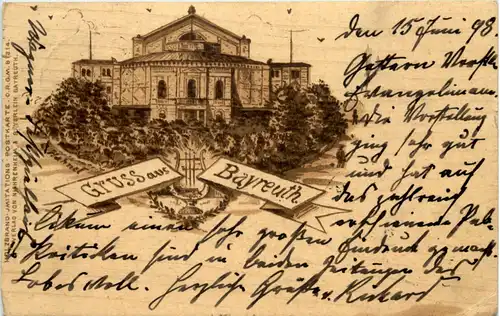 den 15 Juni 98.
Gestern
Evangelimann.
die Vorstellung
ging sehr gut
und hat auf
das zahlreich
erschienene
einen sehr großen Eindruck gemacht.
Kritiken sind in beiden Zeitungen des
Lobes voll. Herzliche Grüße v. Richard
Gruss aus
Bayreuth.
HOLZBRAND-IMITATIONS-POSTKARTE. D.R.G.M.
VERLAG VON BAYREUTH.